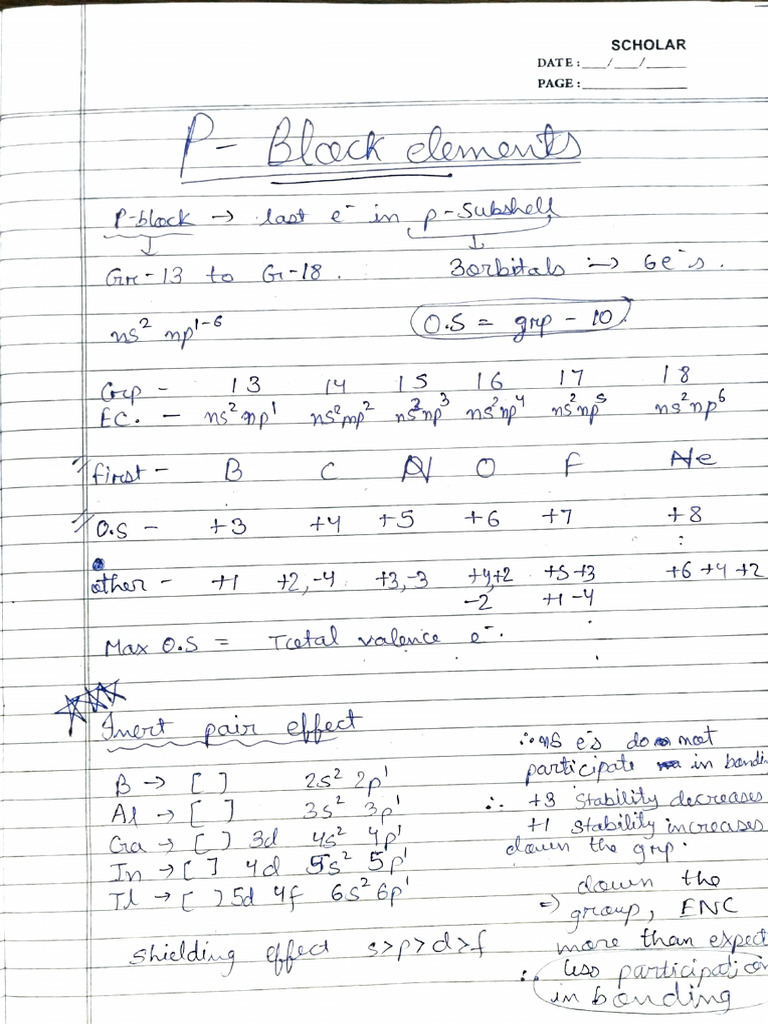 SCHOLAR
DATE: __/__/____
PAGE: ________
P- Block elements
P-block → last e⁻ in p-subshell
↓ ↓
Gr-13 to Gr-18. 3 orbitals → 6e⁻s.
ns² np¹⁻⁶ O.S = grp - 10
Grp - 13 14 15 16 17 18
EC. - ns²np¹ ns²np² ns²np³ ns²np⁴ ns²np⁵ ns²np⁶
first - B C N O F Ne
O.S - +3 +4 +5 +6 +7 +8
other - +1 +2,-4 +3,-3 +4,+2 +5 +3 +6 +4 +2
-2 +1 -4
Max O.S = Total valence e⁻.
Inert pair effect
B → [ ] 2s² 2p¹
Al → [ ] 3s² 3p¹
Ga → [ ] 3d 4s² 4p¹
In → [ ] 4d 5s² 5p¹
Tl → [ ] 5d 4f 6s² 6p¹
Shielding effect s>p>d>f
∴ ns e⁻s do not
participate in bondi
∴ +3 stability decreases
+1 stability increases
down the grp.
down the
⇒ group, ENC
more than expect
∴ less participation
in bonding